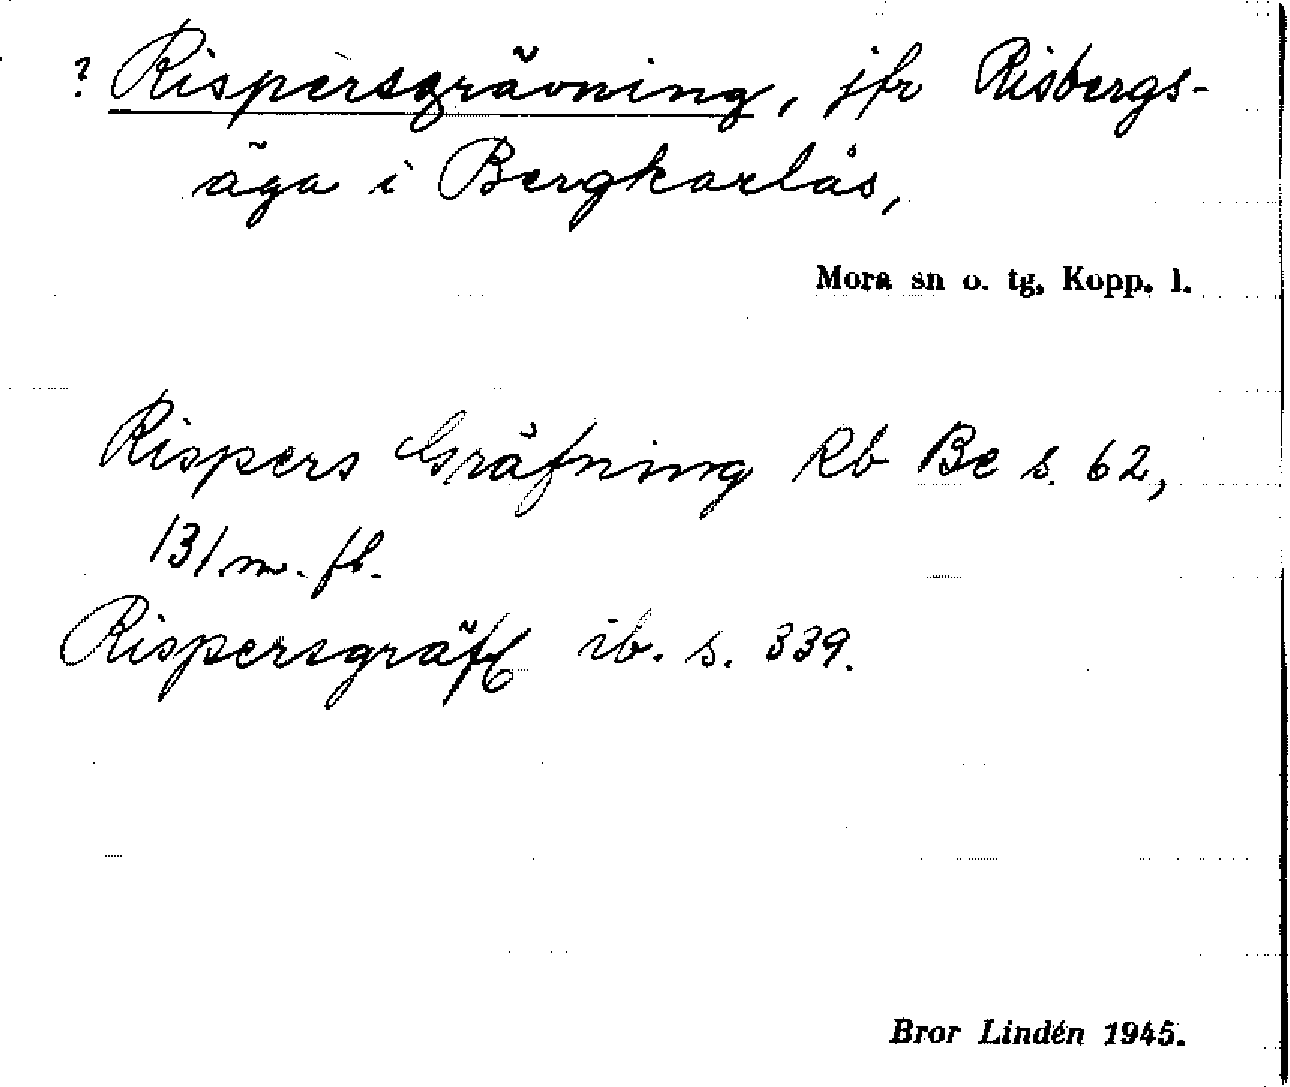 ? Rispersgrävning, jfr Risbergs-
äga i Bergkarlås,
Mora sn o. tg, Kopp. l.
Rispers Gräfning Rb Be s. 62,
131 m. fl.
Rispersgräf ib. s. 339.
Bror Lindén 1945.